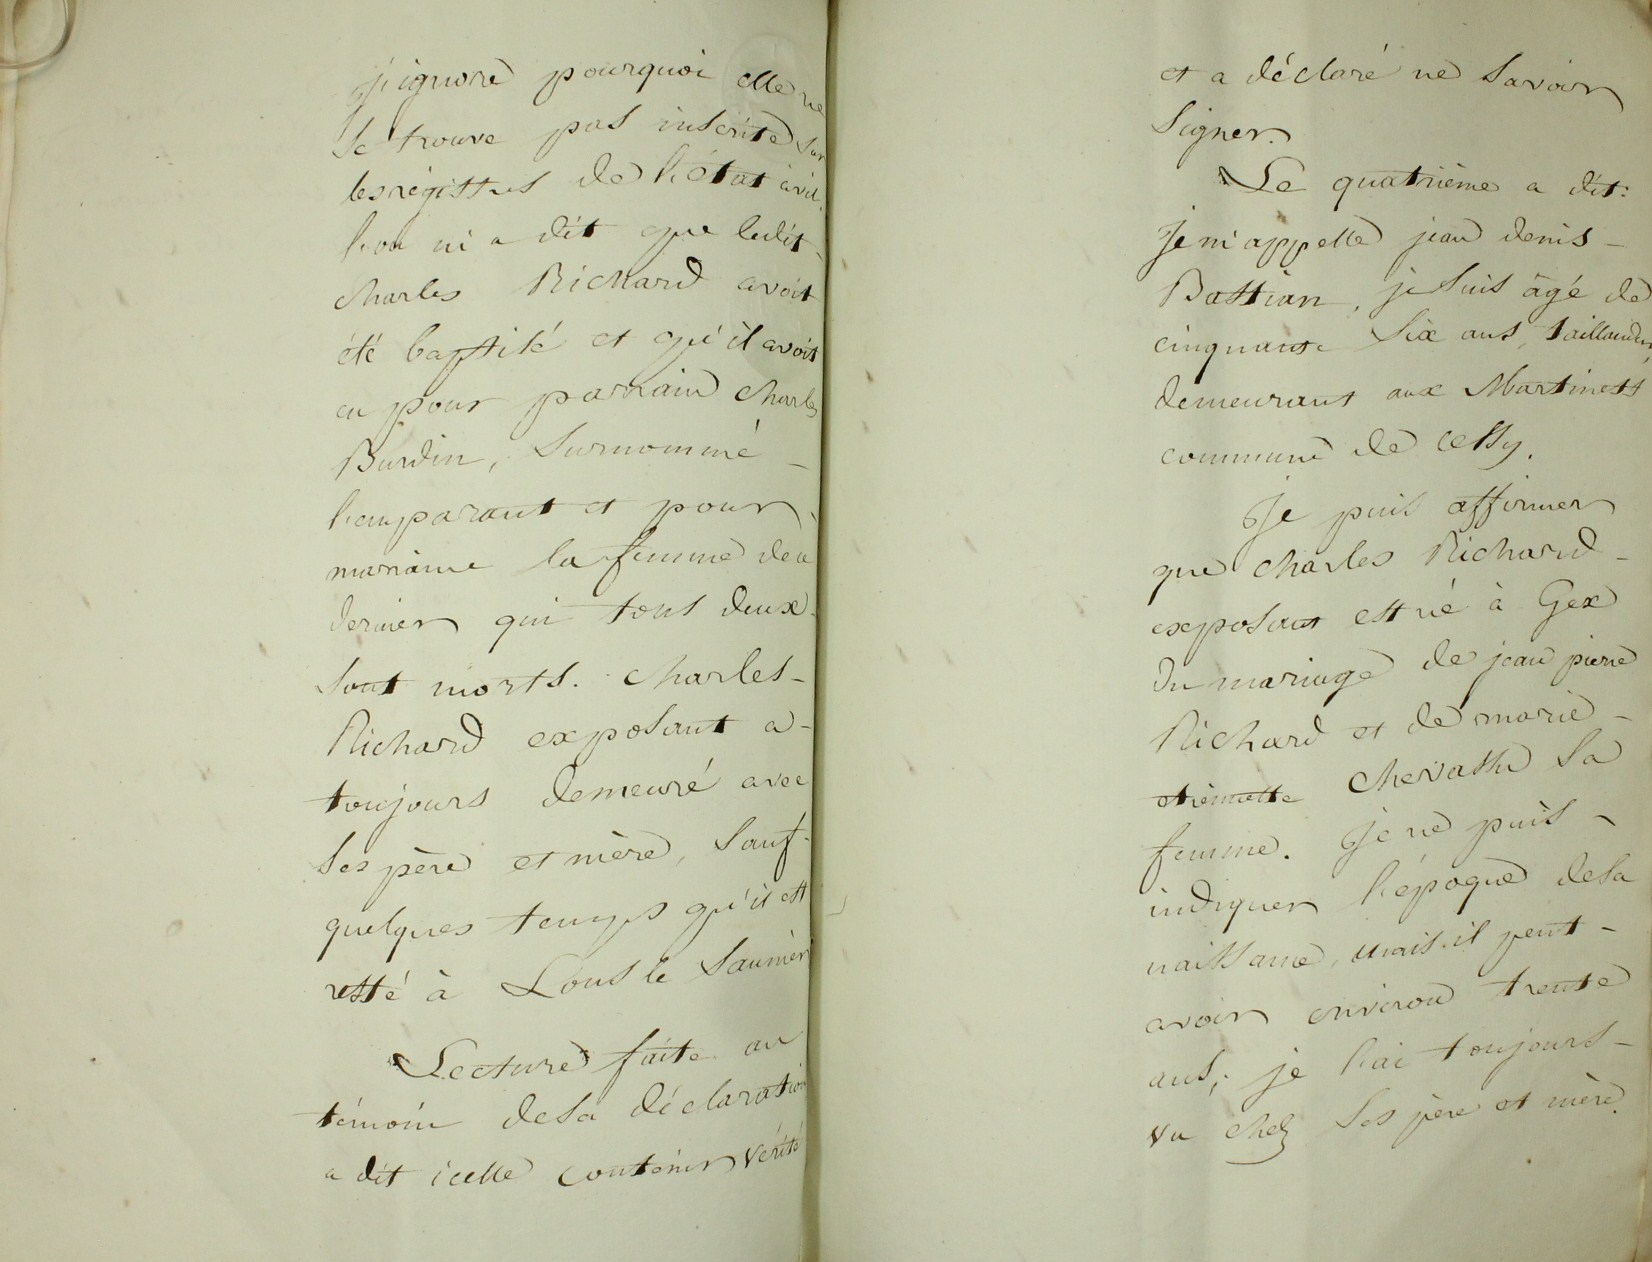 j'ignore pourquoi elle ne
se trouve pas inscrite sur
les régistres de l'état civil.
l'on m'a dit que ledit
charles Richard avoit
été baptisé et qu'il avoit
eu pour parrain charles
Burdin, Surnommé
et pour
maraine la femme de ce
dernier qui tous deux
sont morts. Charles
Richard exposant a
toujours demeuré avec
ses père et mère, Sauf
quelques temps qu'il est
resté à Lons le Saunier
Lecture faite au
témoin de sa déclaration
a dit icelle contenir vérité
et a déclaré ne Savoir
Signer.
Le quatrième a dit:
Je m'appelle jean denis
Bastian, je suis âgé de
cinquante Six ans, taillandier
demeurant aux Martinets
commune de Cessy.
Je puis affirmer
que Charles Richard
exposant est né à Gex
du mariage de jean pierre
Richard et de marie
etiennette Chevassu Sa
femme. Je ne puis
indiquer l'époque de sa
naissance, mais il peut
avoir environ trente
ans; je l'ai toujours
vu chez Ses père et mère.